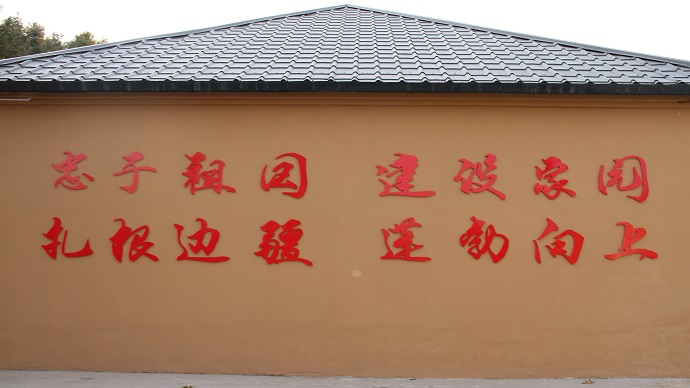 忠于祖国 建设家园
扎根边疆 蓬勃向上